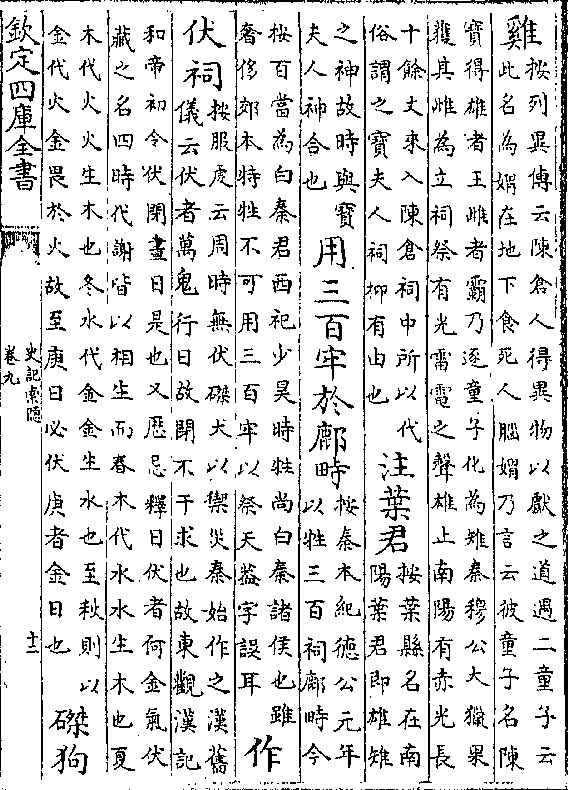 雞
按列異傳云陳倉人得異物以獻之道遇二童子云
此名為媦在地下食死人腦媦乃言云彼童子名陳
寶得雄者王雌者霸乃逐童子化為雉秦穆公大獵果
獲其雌為立祠祭有光雷電之聲雄止南陽有赤光長
十餘丈來入陳倉祠中所以代
俗謂之寶夫人祠抑有由也
注葉君
按葉縣名在南
陽葉君即雄雉
之神故時與寶
夫人神合也
用三百牢於鄜畤
按秦本紀德公元年
以牲三百祠鄜畤今
按百當為白秦君西祀少昊時牲尚白秦諸侯也雖
奢侈郊本特牲不可用三百牢以祭天蓋字誤耳
作
伏祠
按服虔云周時無伏磔犬以禦災秦始作之漢舊
儀云伏者萬鬼行日故閉不干求也故東觀漢記
和帝初令伏閉晝日是也又歷忌釋曰伏者何金氣伏
藏之名四時代謝皆以相生而春木代水水生木也夏
木代火火生木也冬水代金金生水也至秋則以
金代火金畏於火故至庚日必伏庚者金日也
磔狗
欽定四庫全書
史記索隱
卷九
十三